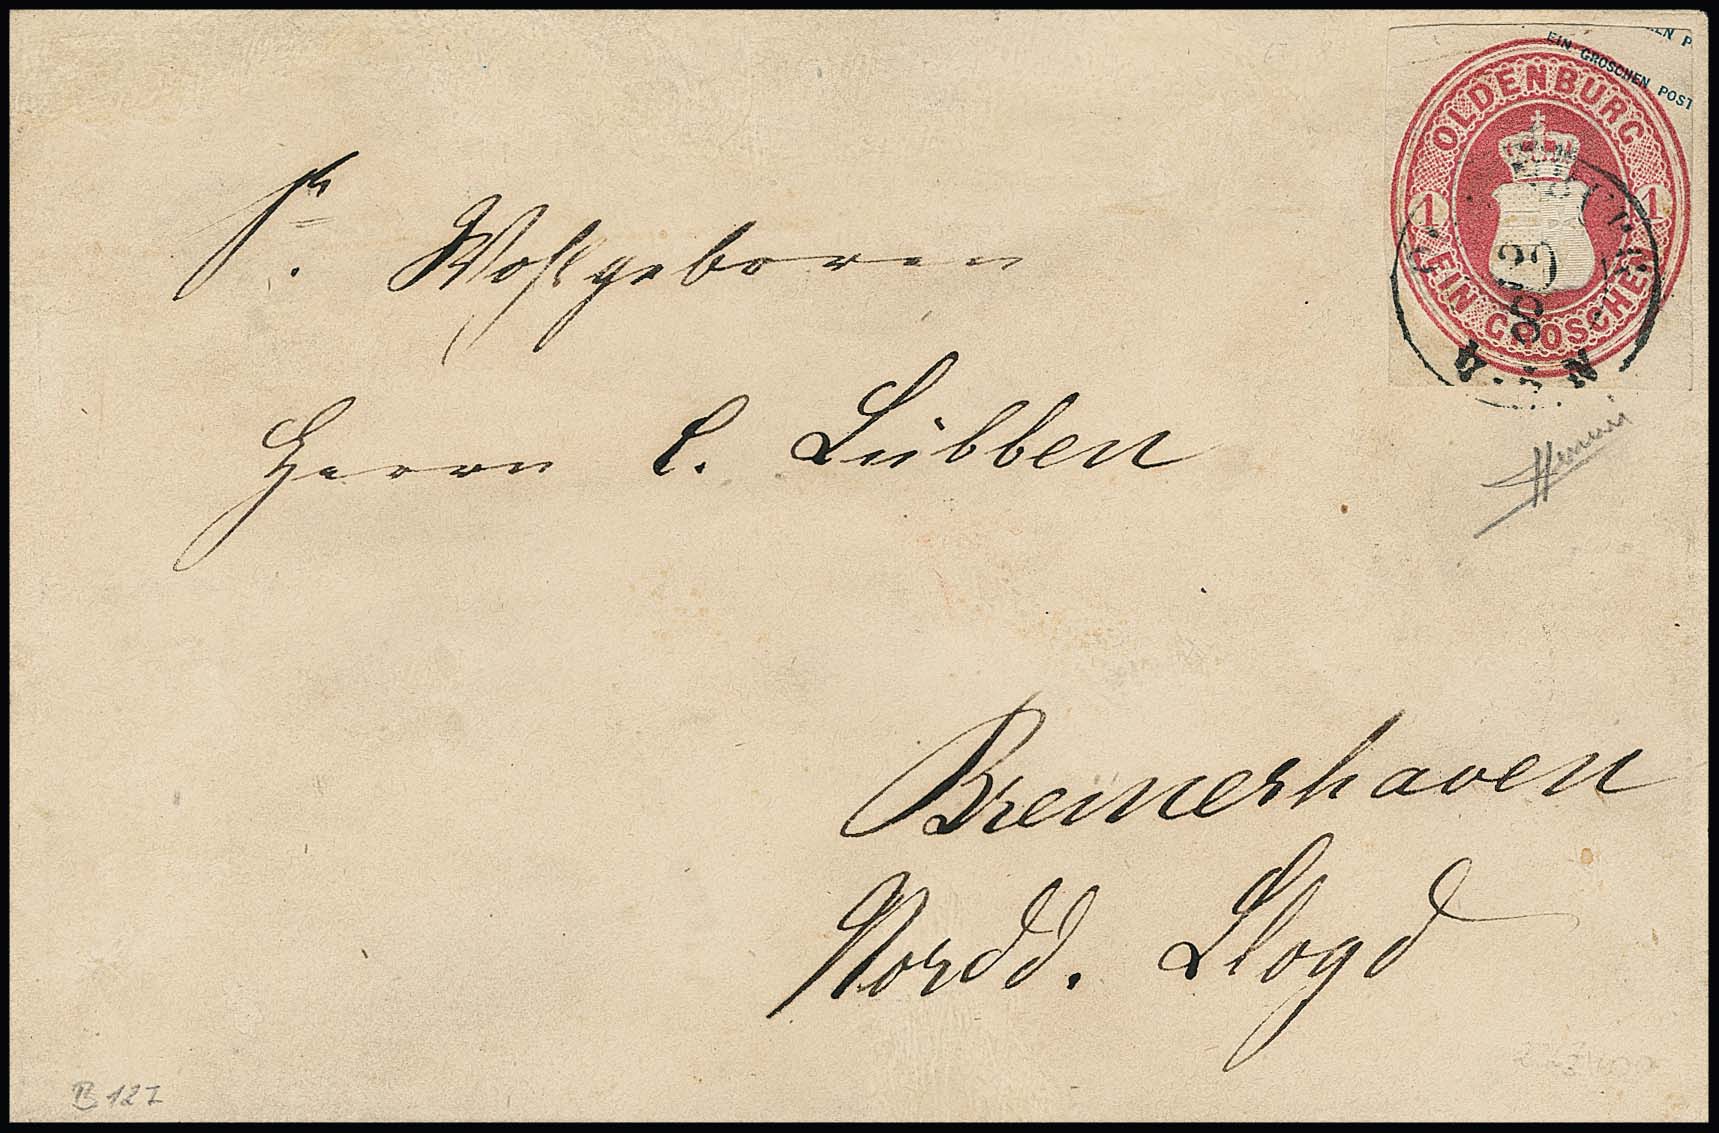 EIN GROSCHEN POST
OLDENBURG
1 1
EIN GROSCHEN
30 3
N 4
Sr. Wohlgeboren
Herrn C. Lübben
Bremerhaven
Nordd. Lloyd
B 127